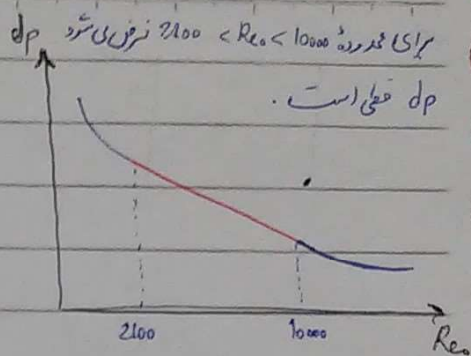 برای محدودهٔ 2100 < Reₒ < 10000 فرض می شود
dp خطی است.
dp
2100
10000
Reₒ